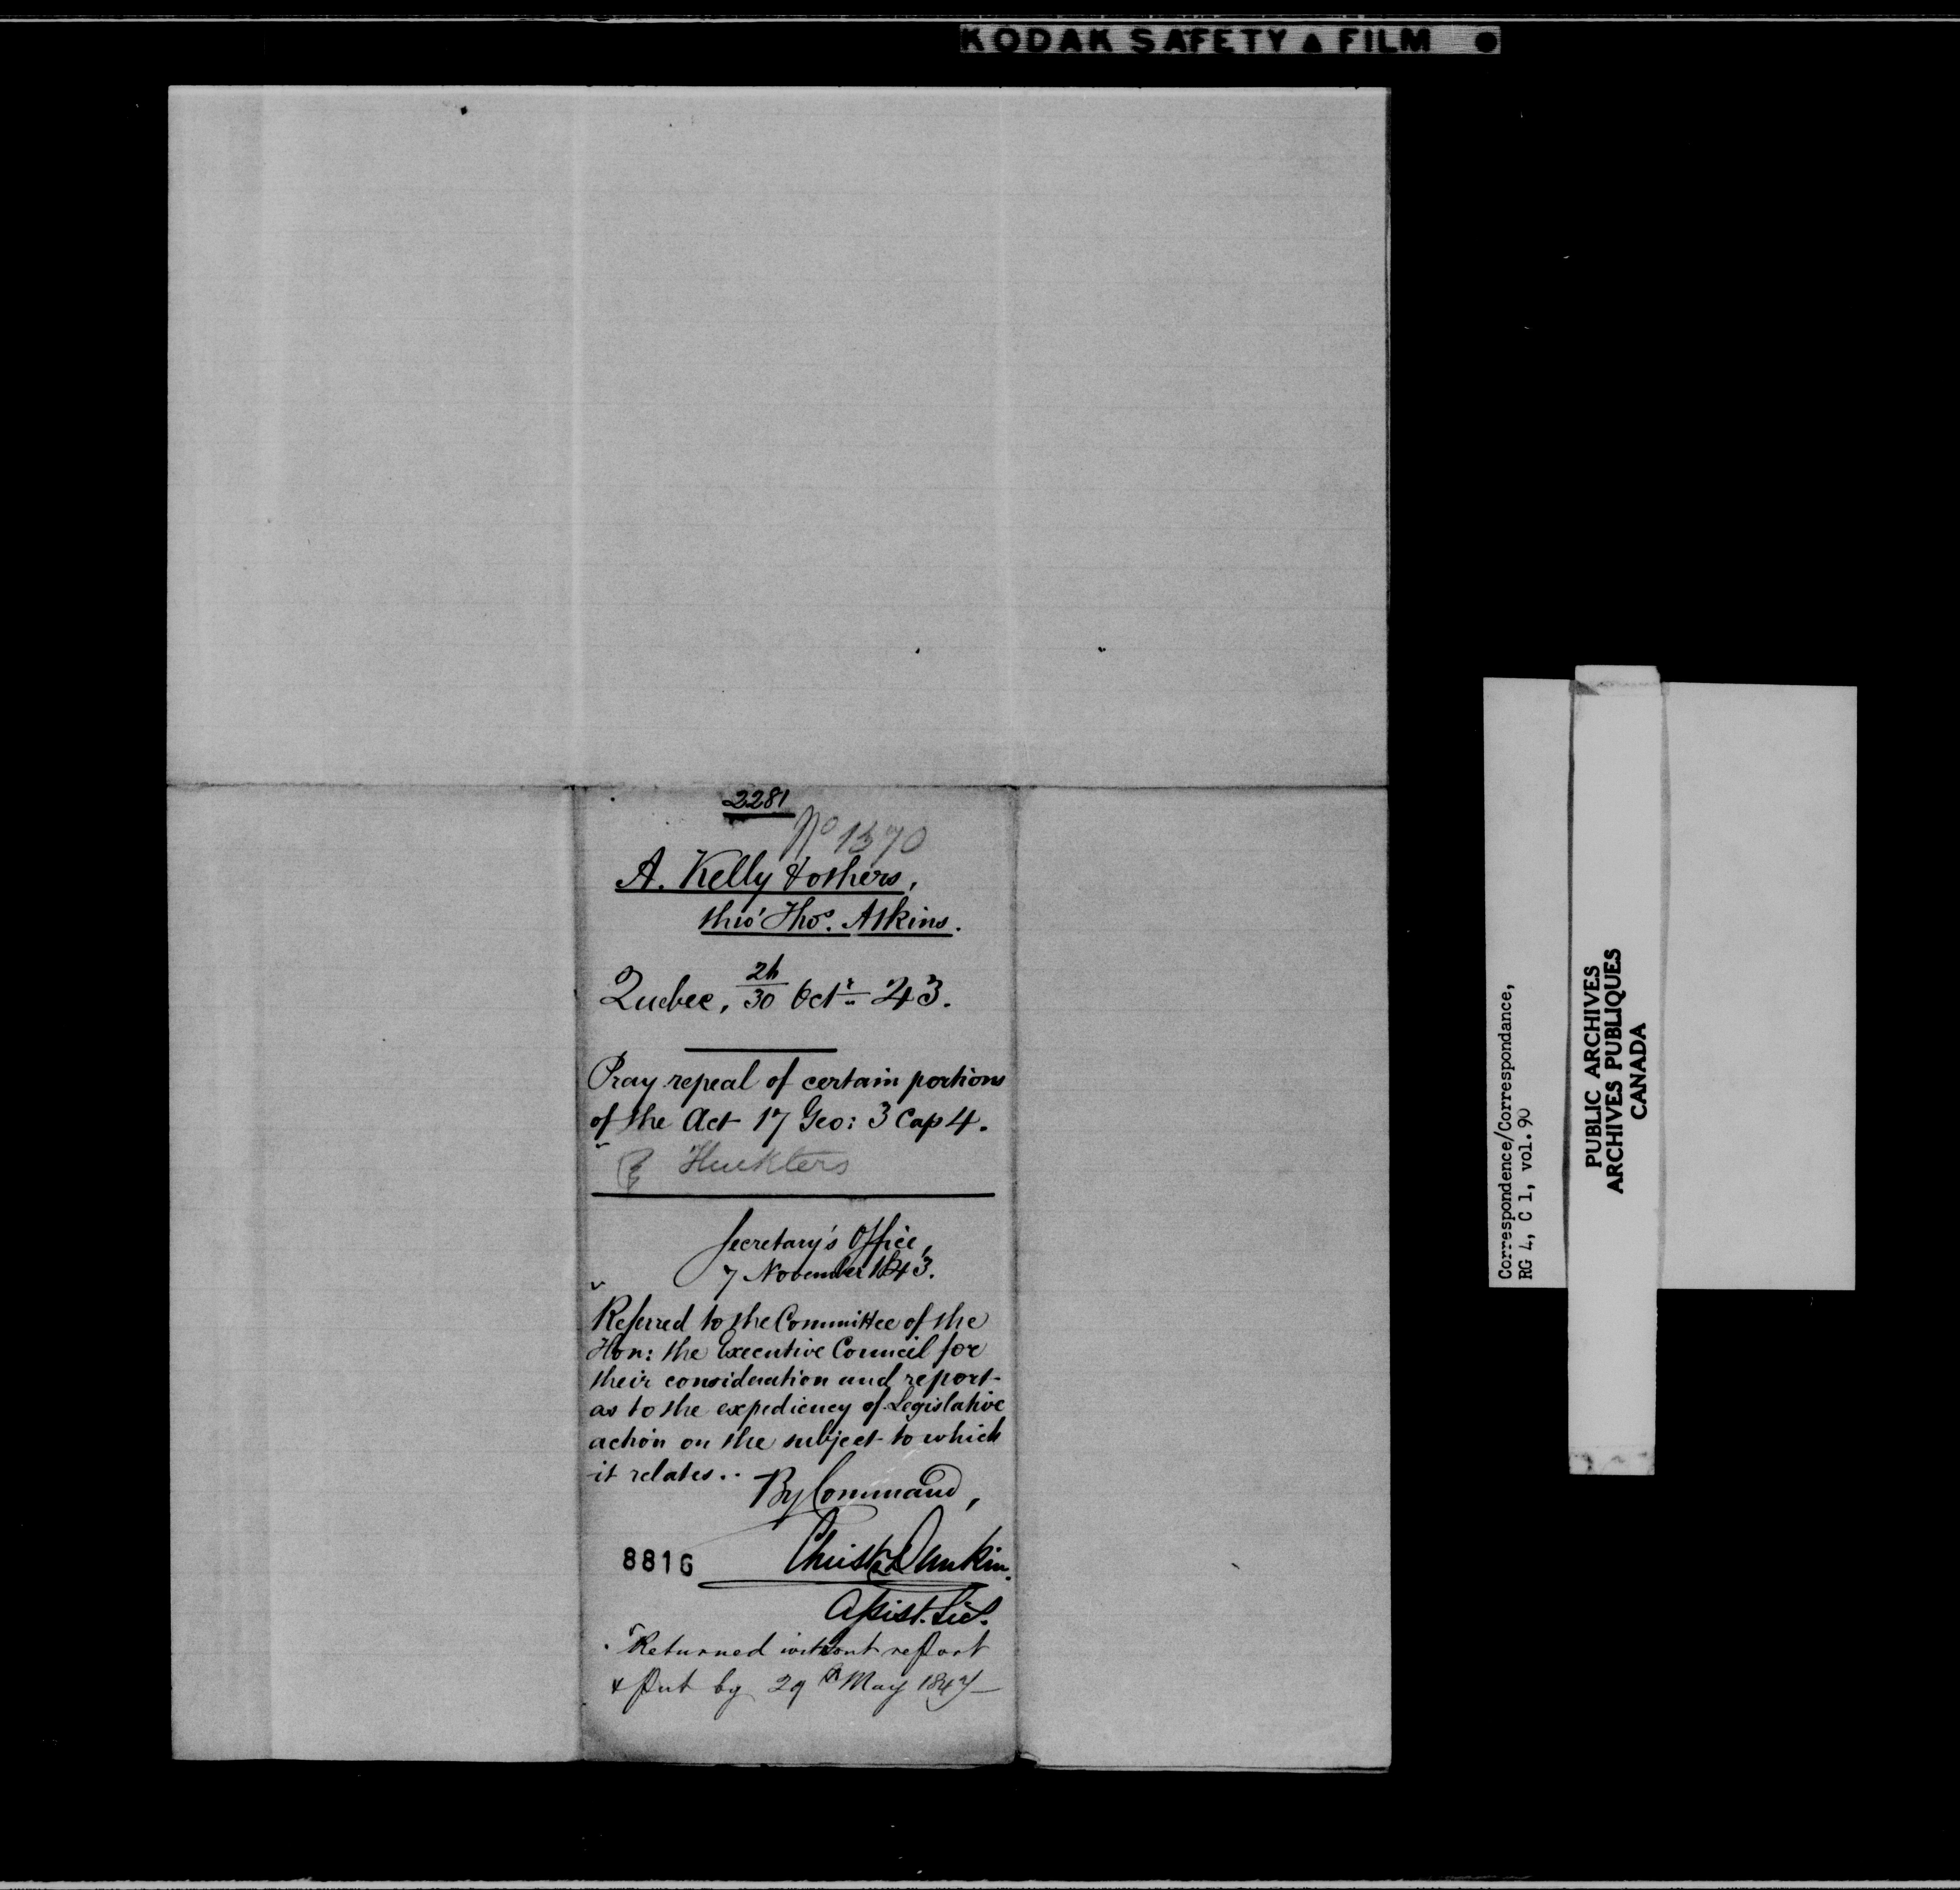 KODAK SAFETY FILM
2281
No 1370
A. Kelly & others,
thro' Thos. Atkins.
Quebec, 26/30 Octr. 43.
Pray repeal of certain portions
of the Act 17 Geo: 3 Cap 4.
Huckters
Secretary's Office,
7 November 1843.
Referred to the Committee of the
Hon: the Executive Council for
their consideration and report
as to the expediency of Legislative
action on the subject to which
it relates.
By Command,
8816 Christr. Dunkin.
Assist. Sec.
Returned without report
& put by 29th May 1847
Correspondence/Correspondance,
RG 4, C 1, vol. 90
PUBLIC ARCHIVES
ARCHIVES PUBLIQUES
CANADA